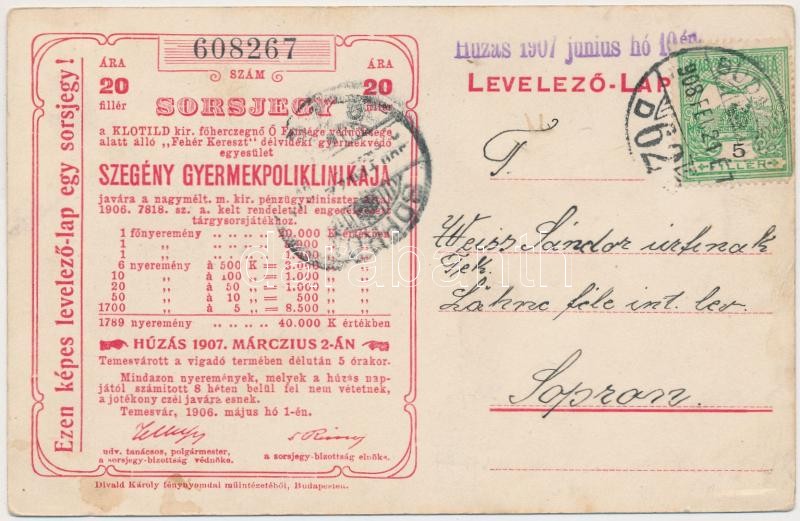 Ezen képes levelező-lap egy sorsjegy!
ÁRA 20 fillér
608267
SZÁM
ÁRA 20 fillér
SORSJEGY
a KLOTILD kir. főherczegnő Ő Fensége védnöksége
alatt álló „Fehér Kereszt" délvidéki gyermekvédő
egyesület
SZEGÉNY GYERMEKPOLIKLINIKÁJA
javára a nagymélt. m. kir. pénzügyminiszter által
1906. 7818. sz. a. kelt rendelettel engedélyezett
tárgysorsjátékhoz.
1 főnyeremény .. .. .. .. 20.000 K értékben
1 „ .. .. .. ..
1 „ .. .. .. .. 1.000 „ „
6 nyeremény à 500 K = 3.000 „ „
10 „ à 100 „ = 1.000 „ „
20 „ à 50 „ = 1.000 „ „
50 „ à 10 „ = 500 „ „
1700 „ à 5 „ = 8.500 „ „
1789 nyeremény .. .. .. .. 40.000 K értékben
HÚZÁS 1907. MÁRCZIUS 2-ÁN
Temesvárott a vigadó termében délután 5 órakor.
Mindazon nyeremények, melyek a húzás nap-
jától számított 8 héten belül fel nem vétetnek,
a jótékony czél javára esnek.
Temesvár, 1906. május hó 1-én.
udv. tanácsos, polgármester,
a sorsjegy-bizottság védnöke.
a sorsjegy-bizottság elnöke.
Divald Károly fénynyomdai műintézetéből, Budapesten.
Húzás 1907 junius hó 10én
LEVELEZŐ-LAP
5
FILLÉR
T.
Weisz Sándor urfinak
Tek.
Lähne féle int. lev.
Sopron.
darabanth